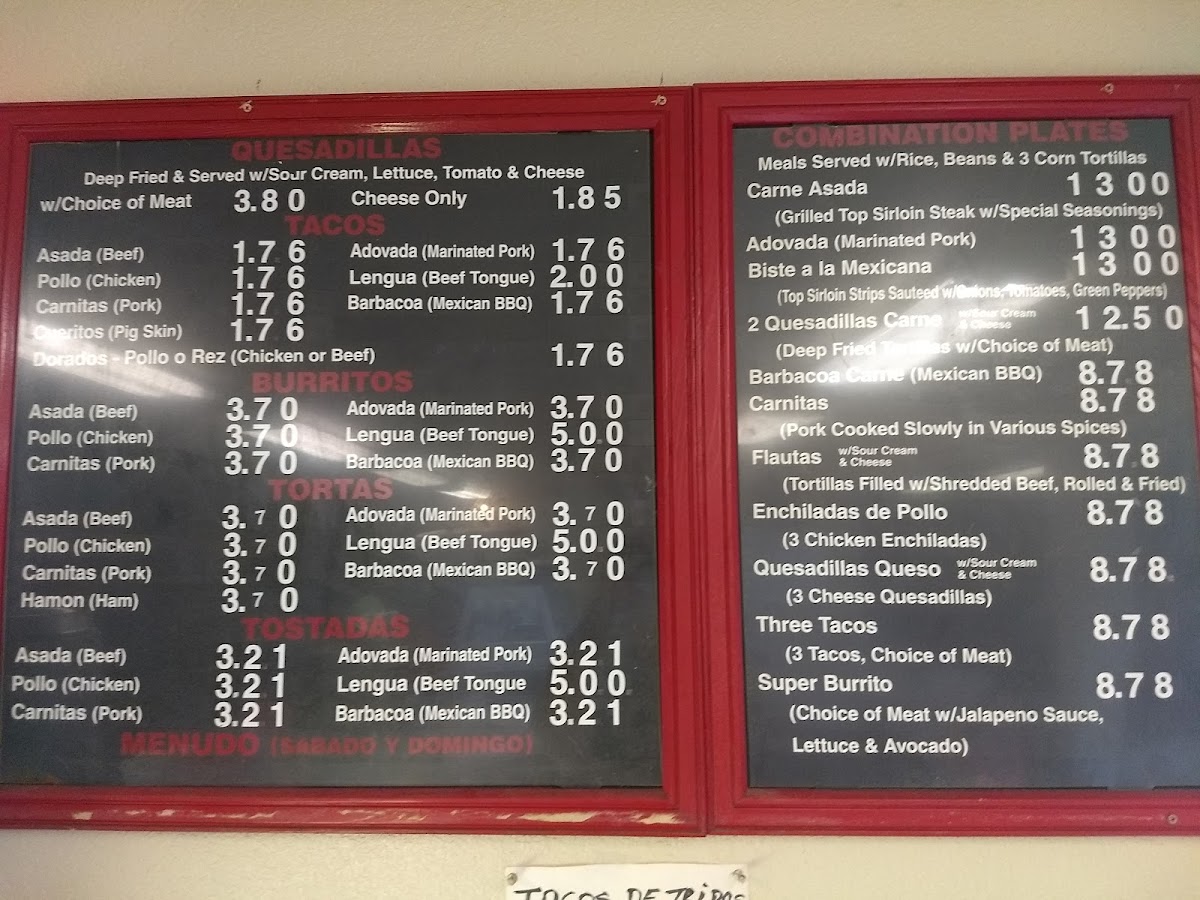 QUESADILLAS
Deep Fried & Served w/Sour Cream, Lettuce, Tomato & Cheese
w/Choice of Meat 3.80 Cheese Only 1.85
TACOS
Asada (Beef) 1.76 Adovada (Marinated Pork) 1.76
Pollo (Chicken) 1.76 Lengua (Beef Tongue) 2.00
Carnitas (Pork) 1.76 Barbacoa (Mexican BBQ) 1.76
Cueritos (Pig Skin) 1.76
Dorados - Pollo o Rez (Chicken or Beef) 1.76
BURRITOS
Asada (Beef) 3.70 Adovada (Marinated Pork) 3.70
Pollo (Chicken) 3.70 Lengua (Beef Tongue) 5.00
Carnitas (Pork) 3.70 Barbacoa (Mexican BBQ) 3.70
TORTAS
Asada (Beef) 3.70 Adovada (Marinated Pork) 3.70
Pollo (Chicken) 3.70 Lengua (Beef Tongue) 5.00
Carnitas (Pork) 3.70 Barbacoa (Mexican BBQ) 3.70
Hamon (Ham) 3.70
TOSTADAS
Asada (Beef) 3.21 Adovada (Marinated Pork) 3.21
Pollo (Chicken) 3.21 Lengua (Beef Tongue 5.00
Carnitas (Pork) 3.21 Barbacoa (Mexican BBQ) 3.21
MENUDO (SABADO Y DOMINGO)
COMBINATION PLATES
Meals Served w/Rice, Beans & 3 Corn Tortillas
Carne Asada 1300
(Grilled Top Sirloin Steak w/Special Seasonings)
Adovada (Marinated Pork) 1300
Biste a la Mexicana 1300
(Top Sirloin Strips Sauteed w/Onions, Tomatoes, Green Peppers)
2 Quesadillas Carne w/Sour Cream & Cheese 12.50
(Deep Fried Tortillas w/Choice of Meat)
Barbacoa Carne (Mexican BBQ) 8.78
Carnitas 8.78
(Pork Cooked Slowly in Various Spices)
Flautas w/Sour Cream & Cheese 8.78
(Tortillas Filled w/Shredded Beef, Rolled & Fried)
Enchiladas de Pollo 8.78
(3 Chicken Enchiladas)
Quesadillas Queso w/Sour Cream & Cheese 8.78
(3 Cheese Quesadillas)
Three Tacos 8.78
(3 Tacos, Choice of Meat)
Super Burrito 8.78
(Choice of Meat w/Jalapeno Sauce,
Lettuce & Avocado)
TACOS DE